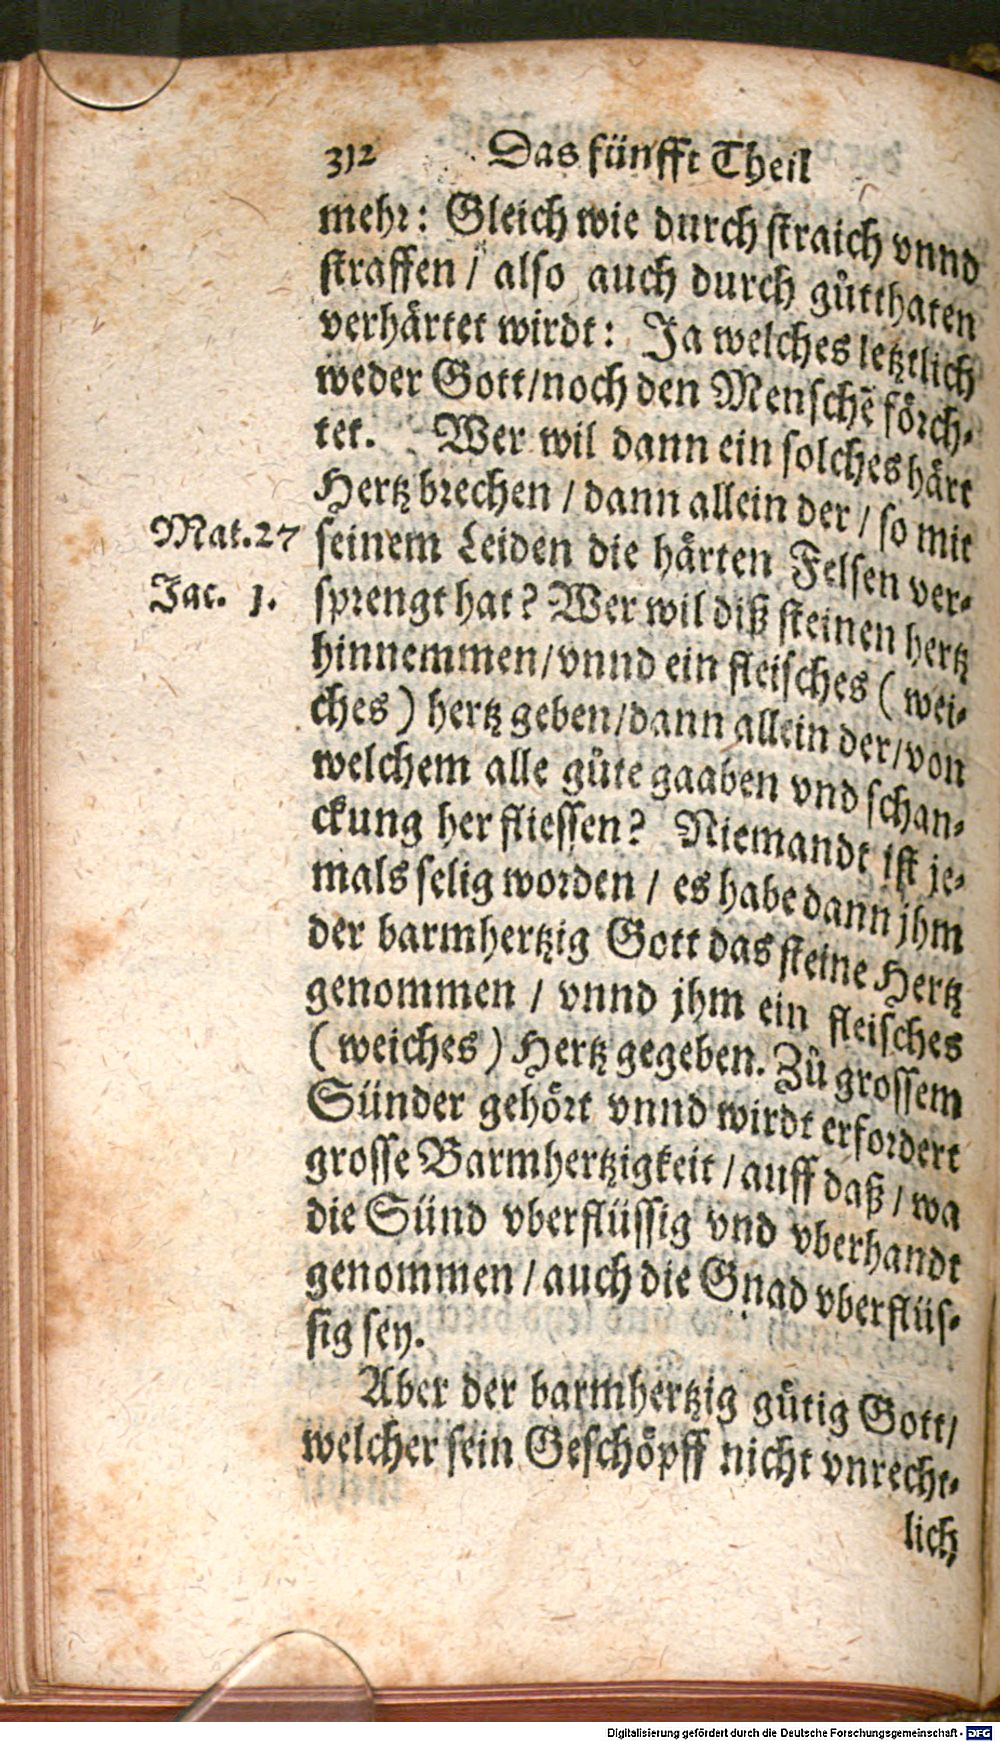 312 Das fünfft Theil
mehr: Gleich wie durch straich vnnd
straffen / also auch durch gůtthaten
verhärtet wirdt: Ja welches letztlich
weder Gott/noch den Menschē förch-
tet. Wer wil dann ein solches härt
Hertz brechen / dann allein der / so mit
Mat.27 seinem Leiden die härten Felsen ver-
Jac. 1. sprengt hat? Wer wil diß steinen hertz
hinnemmen/vnnd ein fleisches (wei-
ches) hertz geben/dann allein der/von
welchem alle gůte gaaben vnd schan-
ckung her fliessen? Niemandt ist je-
mals selig worden / es habe dann jhm
der barmhertzig Gott das steine Hertz
genommen / vnnd jhm ein fleisches
(weiches) Hertz gegeben. Zů grossem
Sünder gehört vnnd wirdt erfordert
grosse Barmhertzigkeit / auff daß / wa
die Sünd vberflüssig vnd vberhandt
genommen / auch die Gnad vberflüs-
sig sey.
Aber der barmhertzig gůtig Gott/
welcher sein Geschöpff nicht vnrecht-
lich
Digitalisierung gefördert durch die Deutsche Forschungsgemeinschaft - DFG